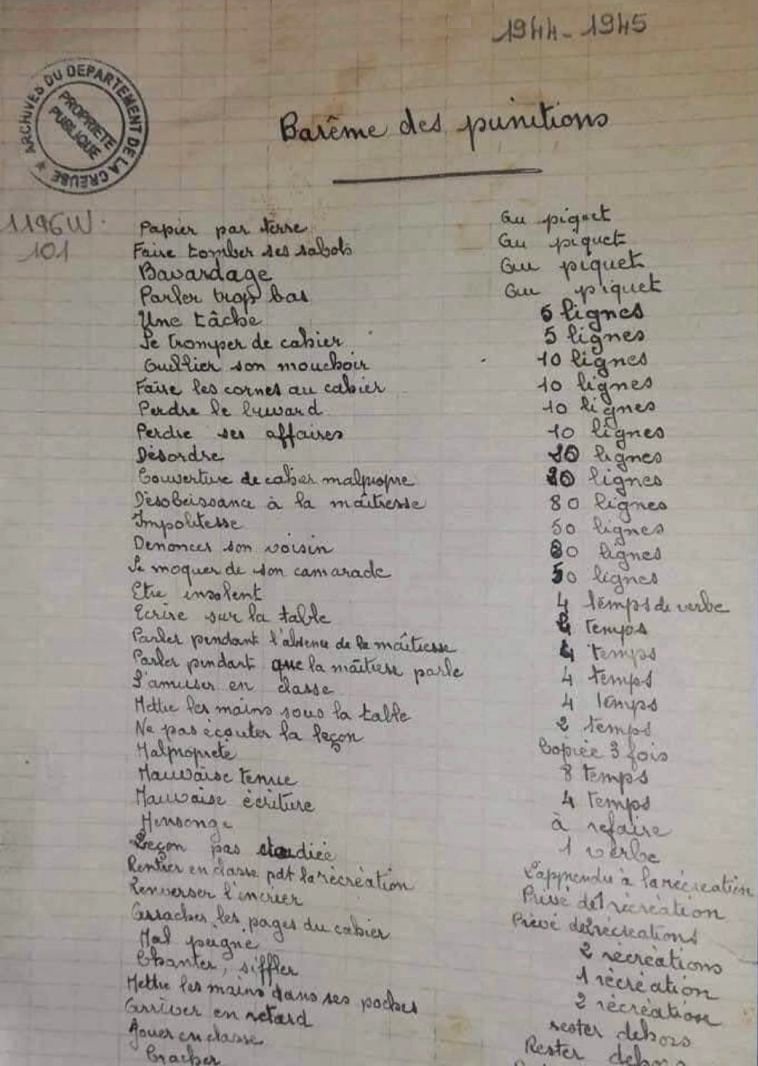 1944-1945
ARCHIVES DU DEPARTEMENT DE LA CREUSE
PROPRIETE PUBLIQUE
Barême des punitions
1196W.
101
Papier par terre Au piquet
Faire tomber ses sabots Au piquet
Bavardage Au piquet
Parler trop bas Au piquet
Une tâche 5 lignes
Se tromper de cahier 5 lignes
Oublier son mouchoir 10 lignes
Faire les cornes au cahier 10 lignes
Perdre le buvard 10 lignes
Perdre ses affaires 10 lignes
Désordre 20 lignes
Couverture de cahier malpropre 20 lignes
Désobeissance à la maîtresse 80 lignes
Impolitesse 50 lignes
Denoncer son voisin 80 lignes
Se moquer de son camarade 50 lignes
Etre insolent 4 temps de verbe
Ecrire sur la table temps
Parler pendant l'absence de la maîtresse 4 temps
Parler pendant que la maîtresse parle 4 temps
S'amuser en classe 4 temps
Mettre les mains sous la table 2 temps
Ne pas écouter la leçon Copiée 3 fois
Malpropreté 8 temps
Mauvaise tenue 4 temps
Mauvaise écriture à refaire
Mensonge 1 verbe
Leçon pas étudiée L'apprendre à la récréation
Rentrer en classe pdt la récréation Privé de récréation
Renverser l'encrier Privé de récréations
Arracher les pages du cahier 2 récréations
Mal peigné 1 récréation
Chanter, siffler 2 récréation
Mettre les mains dans ses poches rester dehors
Arriver en retard Rester dehors
Jouer en classe
Cracher